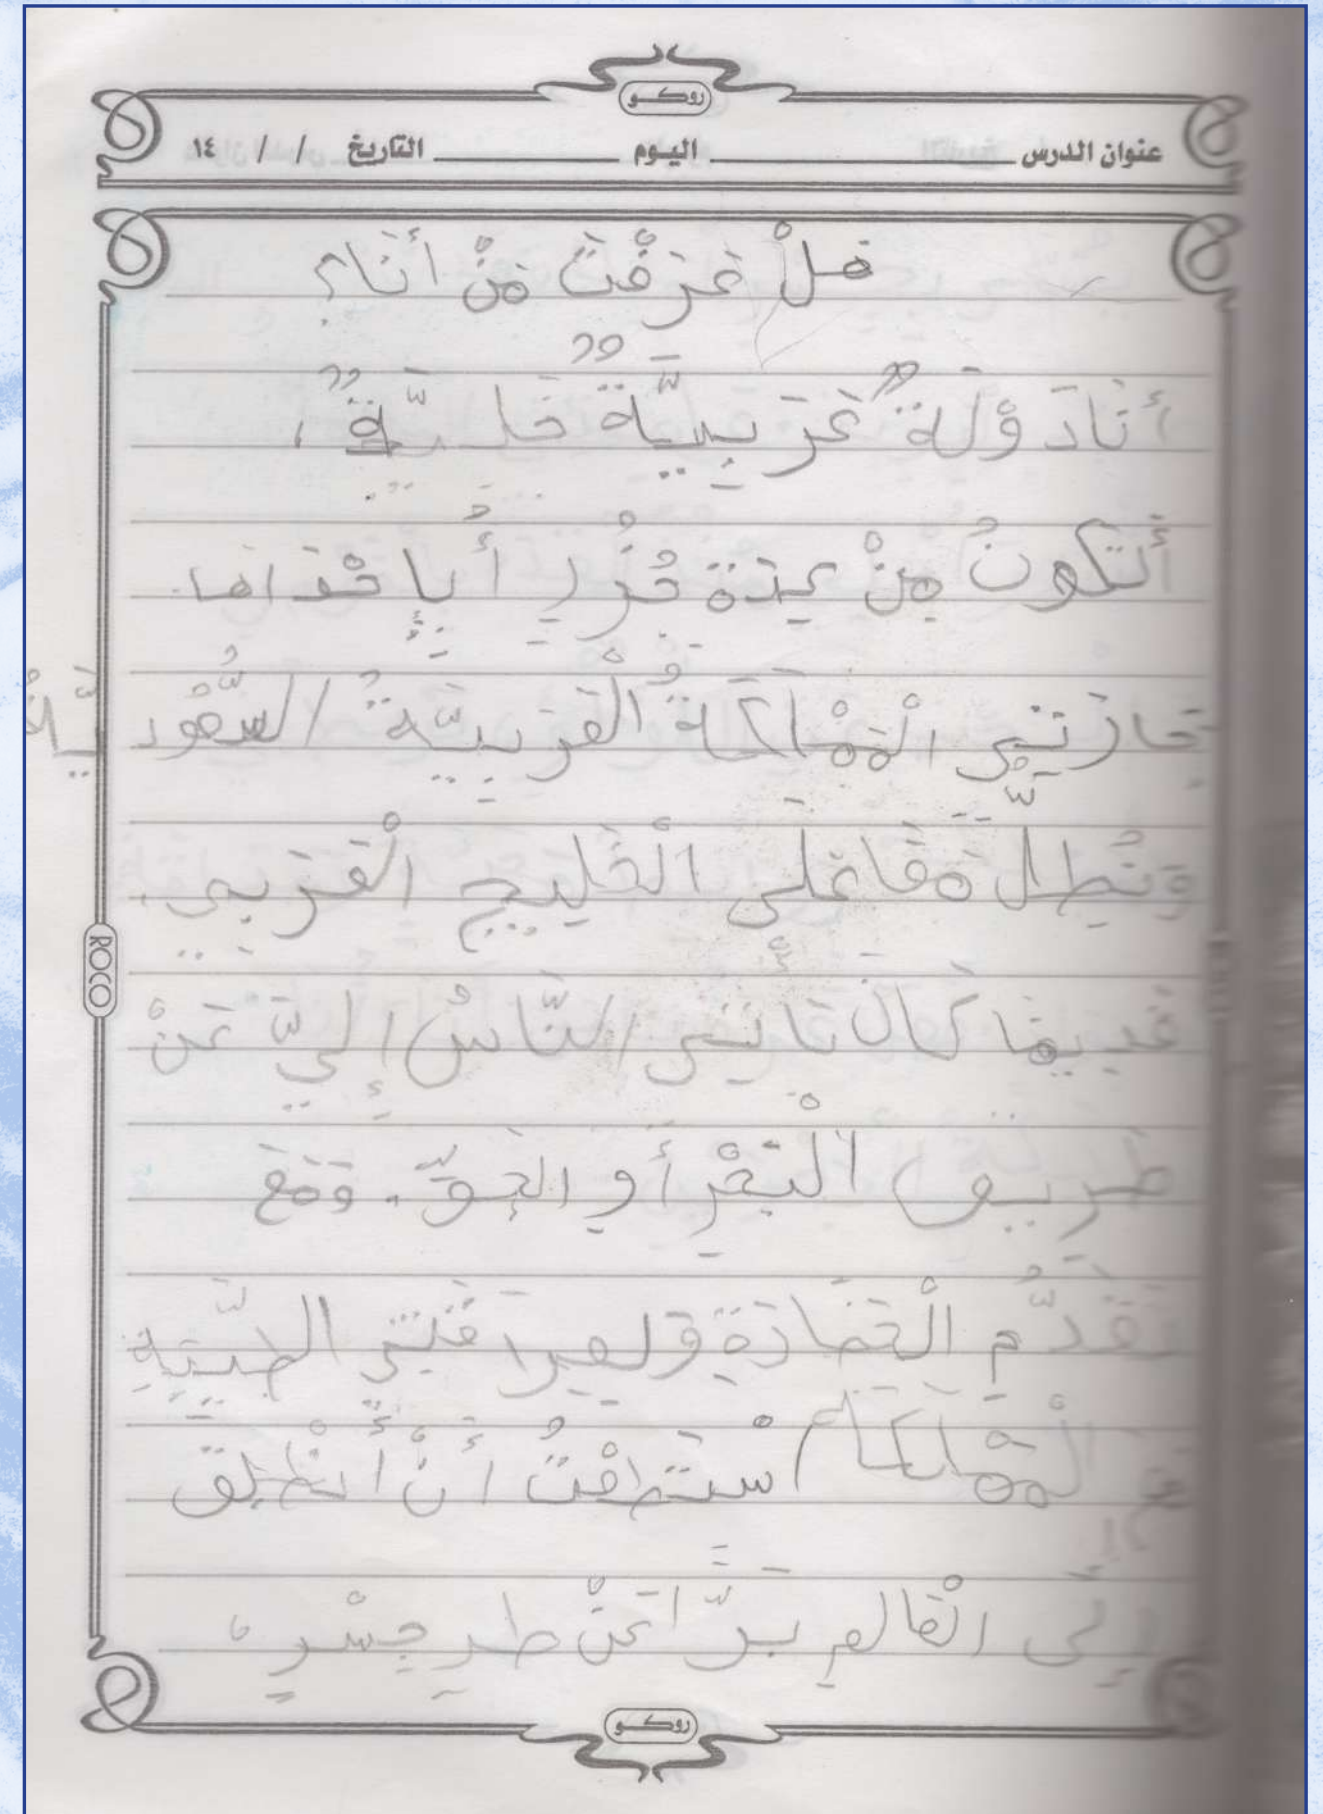 روكو
عنوان الدرس اليوم التاريخ / / ١٤
هَلْ عَرَفْتَ مَنْ أَنَا؟
أَنَا دَوْلَةٌ عَرَبِيَّةٌ خَلِيَّةٌ ،
أَتَكَونُ مِنْ عِدَةِ جُزُرٍ
جَارَتِي الْمَمْلَكَةُ الْعَرَبِيَّةُ السَّعُودِيَّةُ
وَنُطِلُّ مَعًا عَلَى الْخَلِيجِ الْعَرَبِي .
ROCO
قَدِيمًا كَانَ يَأْتِي النَّاسُ إِلَيَّ عَنْ
طَرِيقِ الْبَحْرِ أَوِ الجَوِّ . وَمَعَ
تَقَدُّمِ الْحَضَارَةِ الطَّيِّبَةِ
مَعَ الْمَمْلَكَةِ اسْتَطَعْتُ أَنْ أَنْطَلِقَ
إِلَى الْعَالَمِ بَرًّا عَنْ طَرِ جِسْرِ ،
روكو